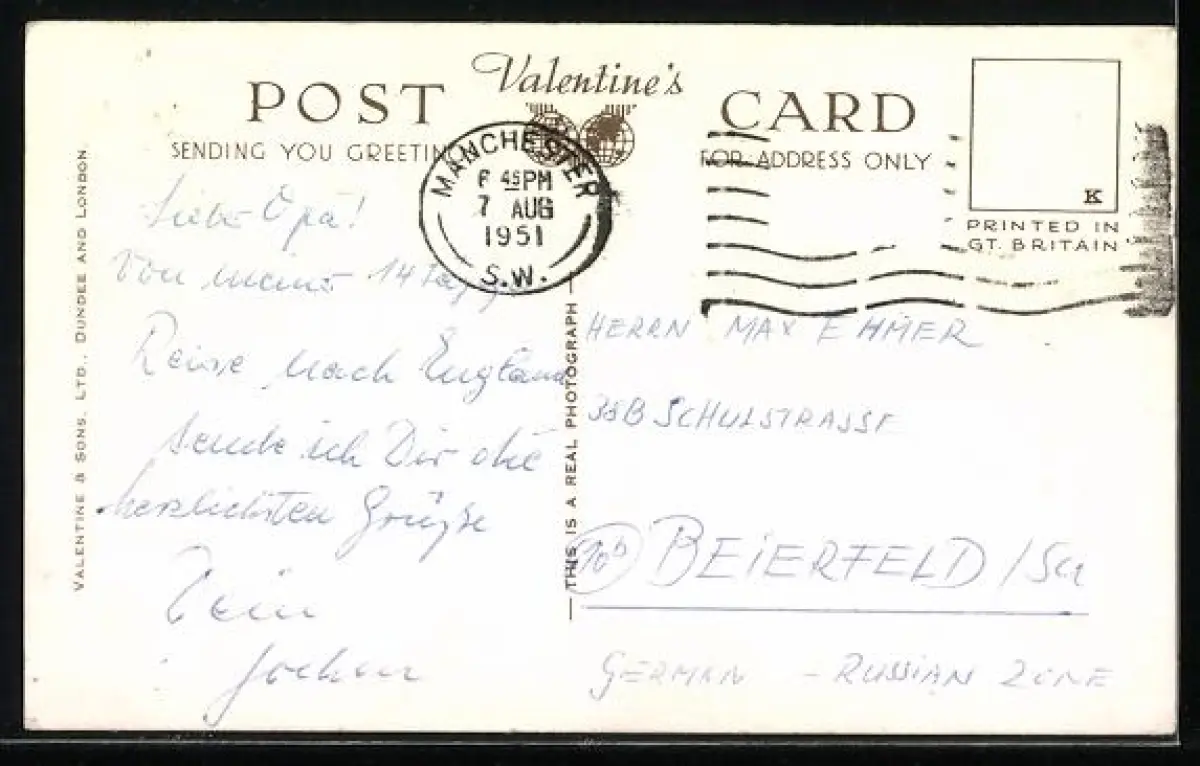 POST Valentine's CARD
SENDING YOU GREETIN
FOR ADDRESS ONLY
K
PRINTED IN
GT. BRITAIN
MANCHESTER
6 45PM
7 AUG
1951
S.W.
VALENTINE & SONS. LTD., DUNDEE AND LONDON.
Opa!
Von meiner 14
Reise nach England
sende ich Dir die
herzlichsten Grüße
Dein
Jochen
THIS IS A REAL PHOTOGRAPH
HERRN MAX EHMER
38B SCHULSTRASSE
10b BEIERFELD /
GERMAN - RUSSIAN ZONE